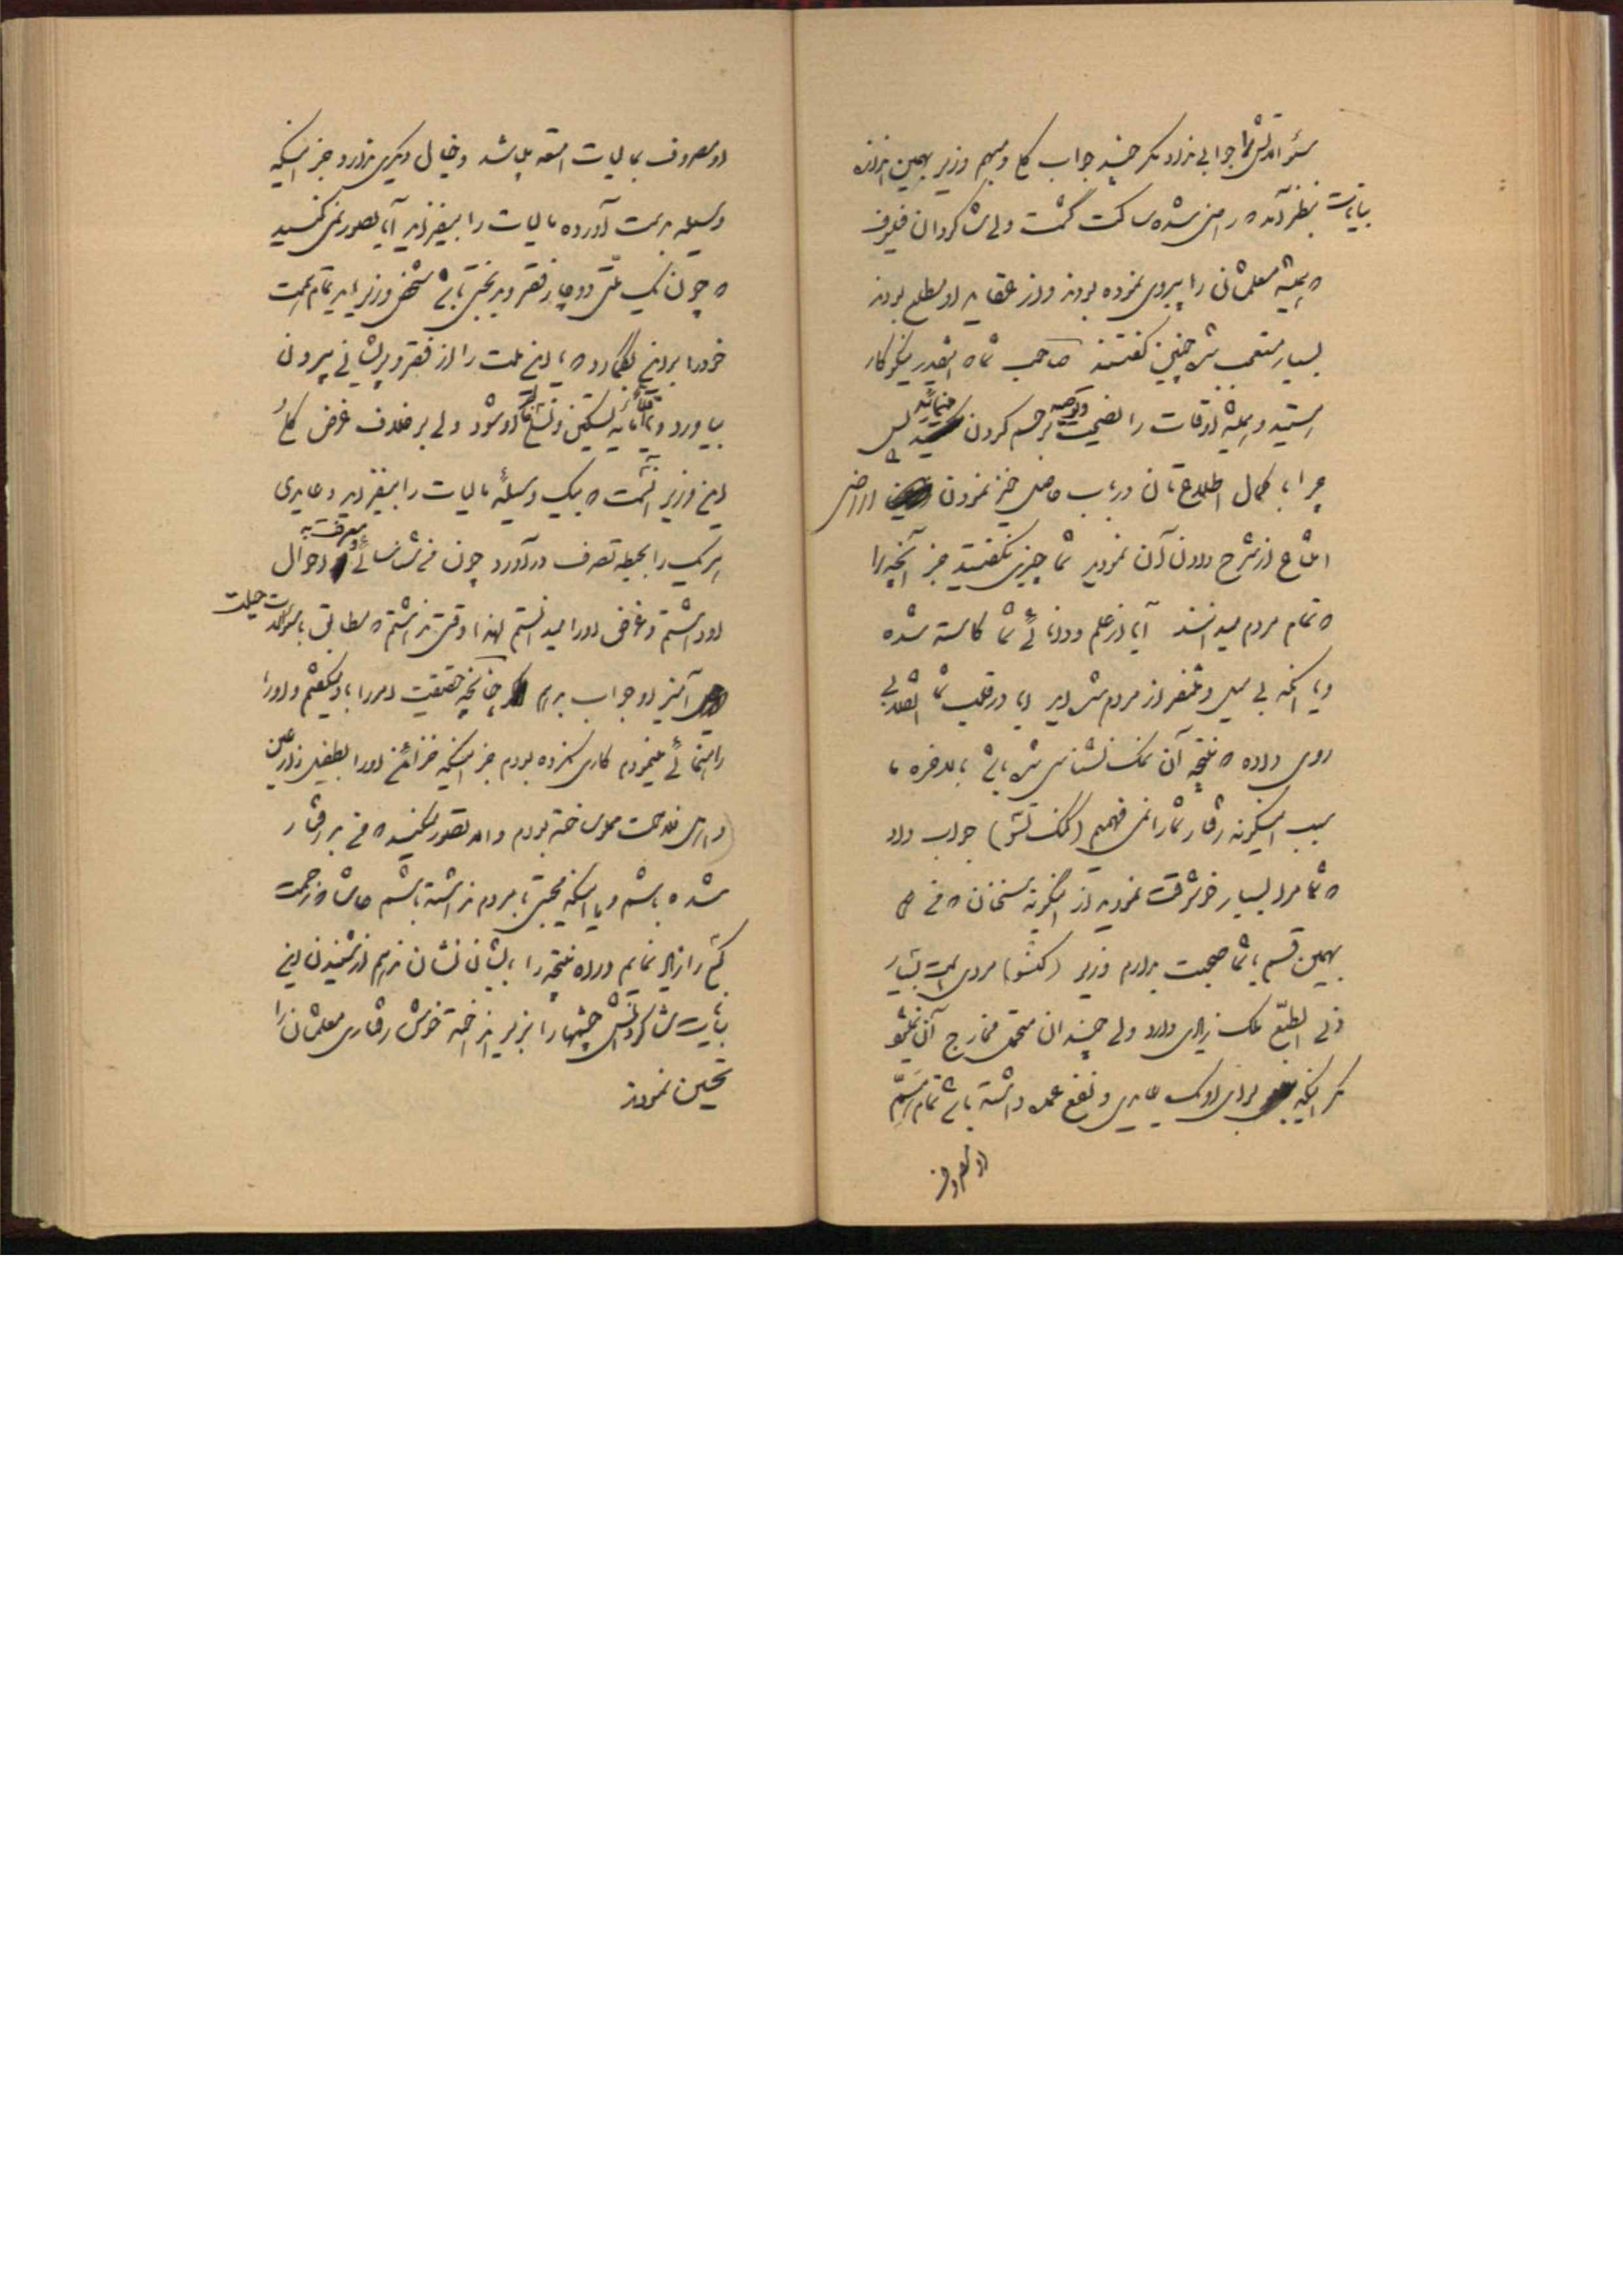 سئوالاتش را جوابی نداد مگر چند جواب کلی و مبهم وزیر بهمین اندازه
بیانات بنظر آمد که راضی شده ساکت گشت ولی شاگردان فیلسوف
که همیشه معلمشان را پیروی نموده بودند و از عقاید او مطلع بودند
بسیار متعجب شده چنین گفتند صاحب شما که اینقدر نیکوکار
هستید و همیشه اوقات را نصیحت و توجه بر حسم کردن مینمائید پس
چرا با کمال اطلاعتان در باب حاصل خیز نمودن اراضی
امتناع از شرح دادن آن نمودید شما چیزی نگفتید جز آنچه را
که تمام مردم میدانند آیا از علم و دانائی شما کاسته شده
و یا آنکه بی میل و متنفر از مردم شده اید یا در قلب شما انقلابی
روی داده که نتیجه آن نمک نشناسی شده باشد بالاخره ما
سبب اینگونه رفتار شما را نمی فهمیم (کنگ تسو) جواب داد
که شما مرا بسیار خوشوقت نمودید از اینگونه سخنان که
بهمین قسم با شما صحبت بدارم وزیر (کنشو) مردی است بسیار
دنی الطبع ملک زیادی دارد ولی چندان متحمل مخارج آن نمیشود
مگر اینکه برای او یک عایدی و نفع عمده داشته باشد تمام
او مصروف
او مصروف بمالیات امتعه میباشد و خیال دیگری ندارد جز اینکه
وسیله بدست آورده مالیات را بیفزاید آیا تصور نمی کنید
که چون یک ملتی دوچار فقر و بدبختی باشد شخص وزیر باید تمام همت
خود را بر این بگمارد که تا این ملت را از فقر و پریشانی بیرون
بیاورد و مایه تسکین و تسلی او شود ولی بر خلاف غرض کلی
این وزیر آنست که بیک وسیله مالیات را بیفزاید و عایدی
هر یک را بحیطه تصرف درآورد چون من شناسائی و معرفت به احوال
او داشتم و غرض او را میدانستم لهذا وقتی نداشتم که مطابق سئوالات حیلت
آمیز او جواب بدهم چنانچه حقیقت امر را باو میگفتم و او را
راهنمائی مینمودم کاری نکرده بودم جز اینکه خزائن او را بطفیل زارعین
و اهل فلاحت مملو ساخته بودم و الا تصور نکنید که من بد رفتار
شده باشم و یا اینکه محبتی با مردم نداشته باشم حاشا که زحمت
کم را زیاد نمایم و راه نتیجه را بایشان نشان ندهم از شنیدن این
بیانات شاگردانش چشمها را بزیر انداخته خوش رفتاری معلمشان را
تحسین نمودند